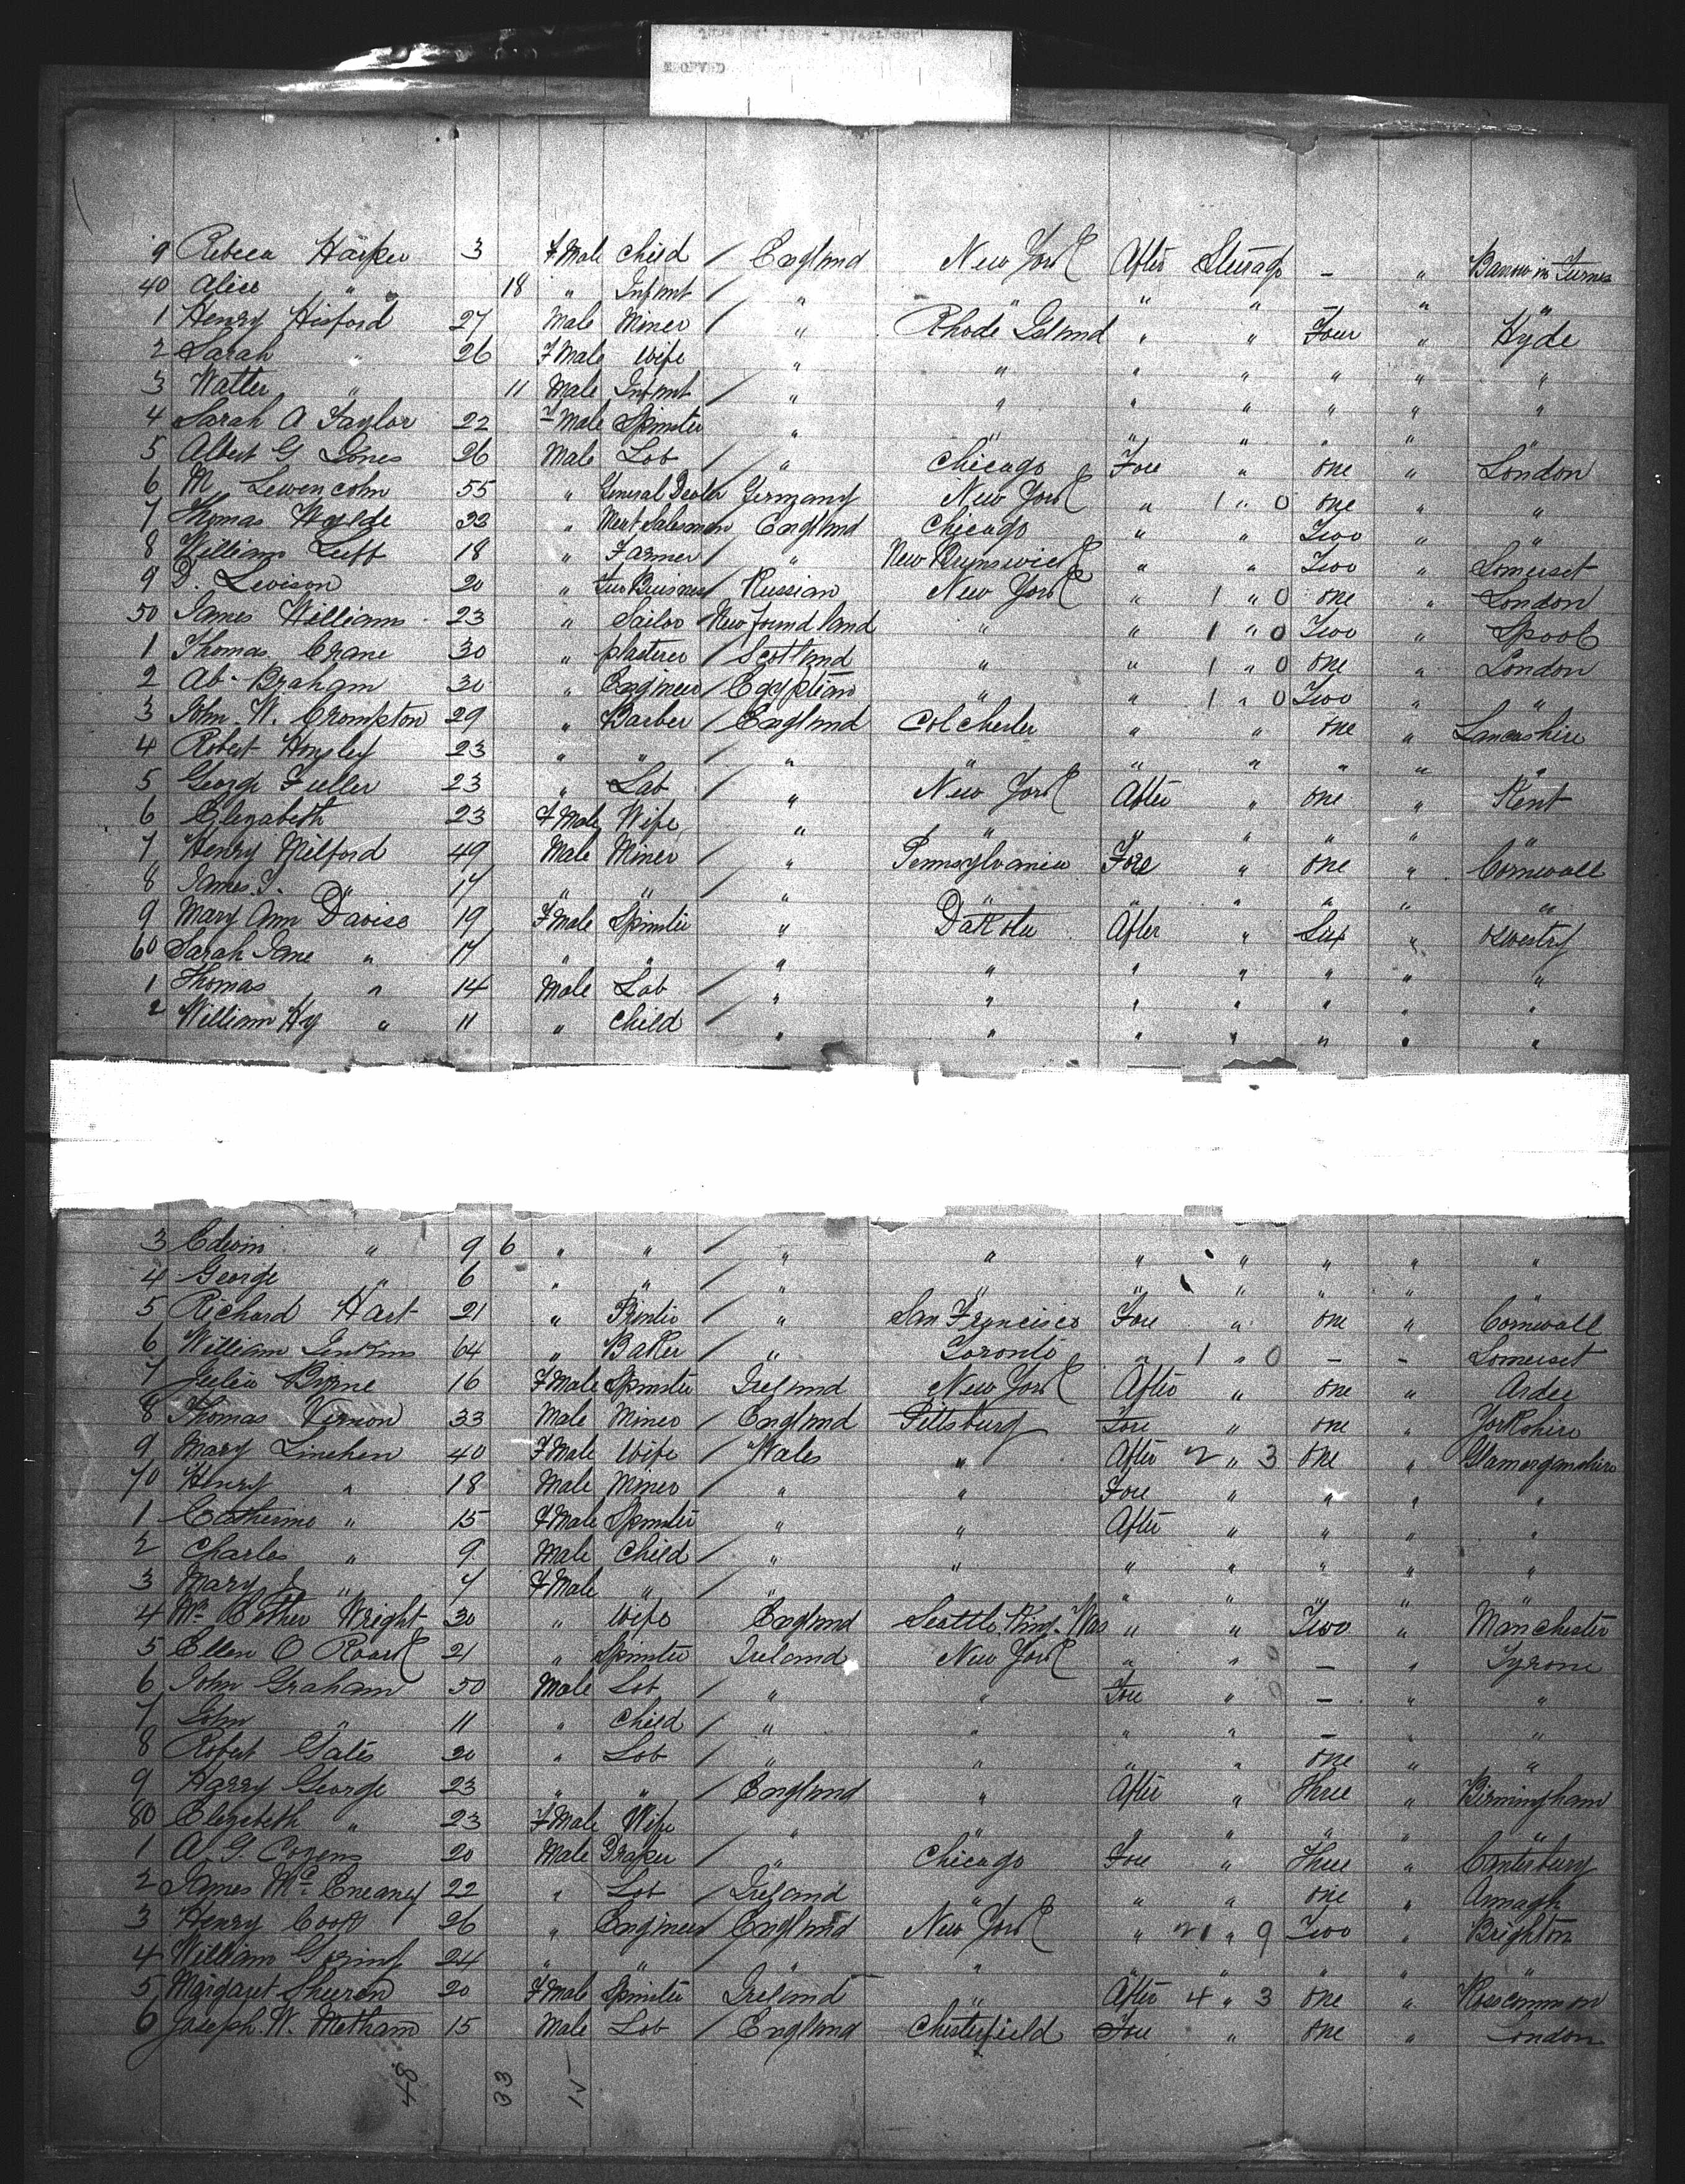 9 Rebecca Harper 3 F Male Child / England New York After Sterage - " Barrow in Furnes
40 Alice " " 18 " Infant / " " " " - " "
1 Henry Hisford 27 Male Miner / " Rhode Island " " Four " Hyde
2 Sarah " 26 F Male Wife " " " " " " "
3 Walter " 11 Male Infant / " " " " " " "
4 Sarah A Taylor 22 F Male Spinster " " " " " " "
5 Albert G Jones 26 Male Lab / " Chicago Fore " one " London
6 M. Lewencohn 55 " General Dealer Germany New York " 1 " 0 one " "
7 Thomas Wylde 32 " Mert Salesman England Chicago " " Two " "
8 William Luff 18 " Farmer / " New Brunswick " " Two " Somerset
9 D. Levison 20 " Russian New York " 1 " 0 one " London
50 James Williams 23 " Sailor New found land " " 1 " 0 Two " Lpool
1 Thomas Crane 30 " plasterer / Scotland " " 1 " 0 one " London
2 Ab- Braham 30 " Engineer / Egyptian " " 1 " 0 Two " "
3 John. W. Crompton 29 " Barber / England Colchester " " one " Lancashire
4 Robert Hoyley 23 " " / " " " " " " "
5 George Fuller 23 " Lab / " New York After " one " Kent
6 Elezabeth 23 F Male Wife " " " " " " "
7 Henry Milford 49 Male Miner / " Pennsylvania Fore " one " Cornwall
8 James. T. " 17 " " / " " " " " " "
9 Mary Ann Davies 19 F Male Spinster " Dakota After " Six " Oswestry
60 Sarah Jane " 17 " " / " " " " " " "
1 Thomas " 14 Male Lab / " " " " " " "
2 William Hy " 11 " Child / " " " " " " "
3 Edwin " 9 6 " " / " " " " " " "
4 George " 6 " " / " " " " " " "
5 Richard Hart 21 " / " San Francisco Fore " one " Cornwall
6 William Jenkins 64 " Baker / " Toronto " 1 " 0 - - Somerset
7 Julia Birne 16 F Male Spinster Ireland New York After " one " Ardee
8 Thomas Vernon 33 Male Miner / England Pittsburg Fore " one " Yorkshire
9 Mary Linehen 40 F Male Wife / Wales " After 2 " 3 one " Glamorganshire
70 Henry " 18 Male Miner / " " Fore " " " "
1 Catherine " 15 F Male Spinster / " " After " " " "
2 Charles " 9 Male Child / " " " " " " "
3 Mary E " 7 F Male " / " " " " " " "
4 Mrs Esther Wright 30 " Wife England Seattle. King. Was " " Two " Manchester
5 Ellen O Roark 21 " Spinster Ireland New York " " - " Tyrone
6 John Graham 50 Male Lab / " " Fore " - " "
7 John " 11 " Child / " " " " - " "
8 Robert Gates 20 " Lab / " " " " one " "
9 Harry George 23 " " / England " After " Three " Birmingham
80 Elezebeth " 23 F Male Wife " " " " " " "
1 A. G. Cozens 20 Male Draper / " Chicago Fore " Three " Canterbury
2 James Mc Eneaney 22 " Lab / Ireland " " " one " Armagh
3 Henry Cook 26 " Engineer England New York " 21 " 9 Two " Brighton
4 William Goring 24 " " / " " " " " " "
5 Margaret Sheeran 20 F Male Spinster Ireland " After 4 " 3 one " Roscommon
6 Joseph. W. Metham 15 Male Lab / England Chesterfield Fore " one " London
48 33 15